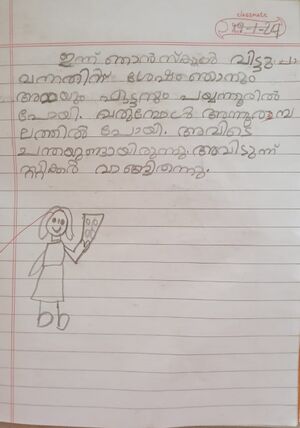 classmate
19-1-24
ഇന്ന് ഞാൻ സ്കൂൾ വിട്ടു
വന്നതിന് ശേഷം ഞാനും
അമ്മയും ഏട്ടനും പയ്യന്നൂരിൽ
പോയി. വരുമ്പോൾ അന്നൂരമ്പ
ലത്തിൽ പോയി. അവിടെ
ചന്തയുണ്ടായിരുന്നു. അവിടുന്ന്
സ്റ്റിക്കർ വാങ്ങിതന്നു.